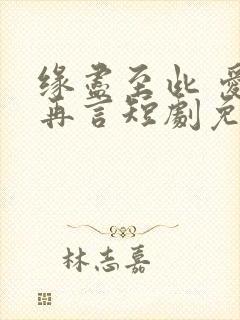 缘尽至此 爱
再言短剧免
林志嘉